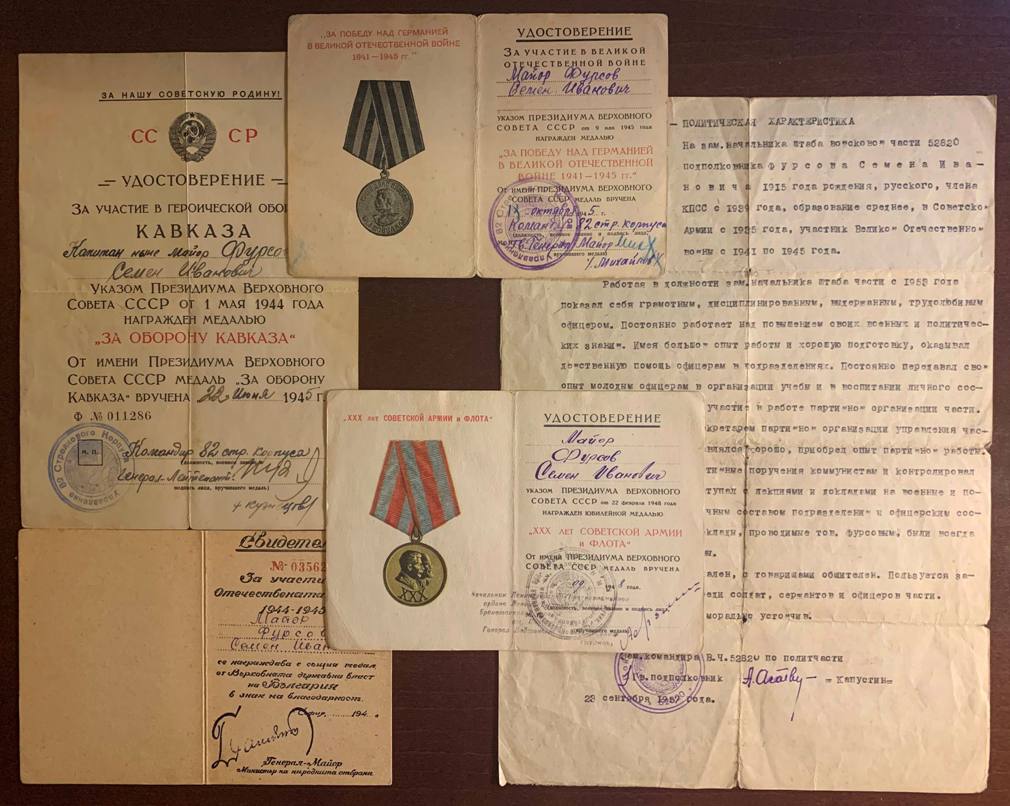 ЗА НАШУ СОВЕТСКУЮ РОДИНУ!
СС СР
УДОСТОВЕРЕНИЕ
ЗА УЧАСТИЕ В ГЕРОИЧЕСКОЙ ОБОР
КАВКАЗА
Капитан ныне майор Фурсо
Семен Иванович
УКАЗОМ ПРЕЗИДИУМА ВЕРХОВНОГО
СОВЕТА СССР ОТ 1 МАЯ 1944 ГОДА
НАГРАЖДЕН МЕДАЛЬЮ
„ЗА ОБОРОНУ КАВКАЗА"
ОТ ИМЕНИ ПРЕЗИДИУМА ВЕРХОВНОГО
СОВЕТА СССР МЕДАЛЬ „ЗА ОБОРОНУ
КАВКАЗА" ВРУЧЕНА 22 Июня 1945 г
Ф № 011286
М. П.
Командир 82 стр. корпуса
Генерал-Лейтенант
подпись лица, вручившего медаль)
„ЗА ПОБЕДУ НАД ГЕРМАНИЕЙ
В ВЕЛИКОЙ ОТЕЧЕСТВЕННОЙ ВОЙНЕ
1941—1945 гг."
УДОСТОВЕРЕНИЕ
ЗА УЧАСТИЕ В ВЕЛИКОЙ
ОТЕЧЕСТВЕННОЙ ВОЙНЕ
Майор Фурсов
Семен Иванович
УКАЗОМ ПРЕЗИДИУМА ВЕРХОВНОГО
СОВЕТА СССР от 9 мая 1945 года
НАГРАЖДЕН МЕДАЛЬЮ
„ЗА ПОБЕДУ НАД ГЕРМАНИЕЙ
В ВЕЛИКОЙ ОТЕЧЕСТВЕННОЙ
ВОЙНЕ 1941—1945 гг."
ОТ ИМЕНИ ПРЕЗИДИУМА ВЕРХОВНОГО
СОВЕТА СССР МЕДАЛЬ ВРУЧЕНА
октября 1945 г.
Командир 82 стр. корпуса
Гв. Генерал Майор
/. Михайлов
- ПОЛИТИЧЕСКАЯ ХАРАКТЕРИСТИКА
На зам.начальника штаба войсковой части 52820
подполковника Ф у р с о в а С е м е н а И в а -
н о в и ч а 1915 года рождения, русского, члена
КПСС с 1939 года, образование среднее, в Советско
Армии с 1935 года, участник Великой Отечественно
войны с 1941 по 1945 года.
Работая в должности зам.начальника штаба части с 1953 года
показал себя грамотным, дисциплинированным, выдержанным, трудолюбивым
офицером. Постоянно работает над повышением своих военных и политичес-
ких знаний. Имея большой опыт работы и хорошую подготовку, оказывал
действенную помощь офицерам в подразделениях. Постоянно передавал сво
опыт молодым офицерам в организации учебы и в воспитании личного сос-
участие в работе партийной организации части.
кретарем партийной организации управления час-
влялся хорошо, приобрел опыт партийной работы.
тийные поручения коммунистам и контролировал
тупал с лекциями и докладами на военные и по-
чным составом подразделений и офицерским сос-
клады, проводимые тов. фурсовым, были всегда
ы.
ален, с товарищами общителен. Пользуется за-
еди солдат, сержантов и офицеров части.
морально устойчив.
Зам.командира В.Ч.52820 по политчасти
Гв.подполковник
= Капустин=
23 сентября 1957 года.
„XXX лет СОВЕТСКОЙ АРМИИ и ФЛОТА"
XXX
УДОСТОВЕРЕНИЕ
Майор
Фурсов
Семен Иванович
УКАЗОМ ПРЕЗИДИУМА ВЕРХОВНОГО
СОВЕТА СССР от 22 февраля 1948 года
НАГРАЖДЕН ЮБИЛЕЙНОЙ МЕДАЛЬЮ
„XXX ЛЕТ СОВЕТСКОЙ АРМИИ
и ФЛОТА"
ОТ ИМЕНИ ПРЕЗИДИУМА ВЕРХОВНОГО
СОВЕТА СССР МЕДАЛЬ ВРУЧЕНА
1948 года.
Свидетел
№ 03562
За участи
Отечествената
1944-1945
Майор
Фурсо
Семен Иван
се награждава с същия медал
от Върховната държавна власт
на България
в знак на благодарност.
София, 194
Генерал-Майор
Министър на народната отбрана